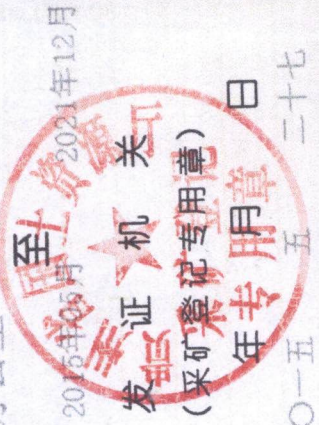 2015年05月 至 2021年12月
发证机关
(采矿登记专用章)
〇一五 年 五 月 二十七 日
国土资源厅
采矿登记
专用章